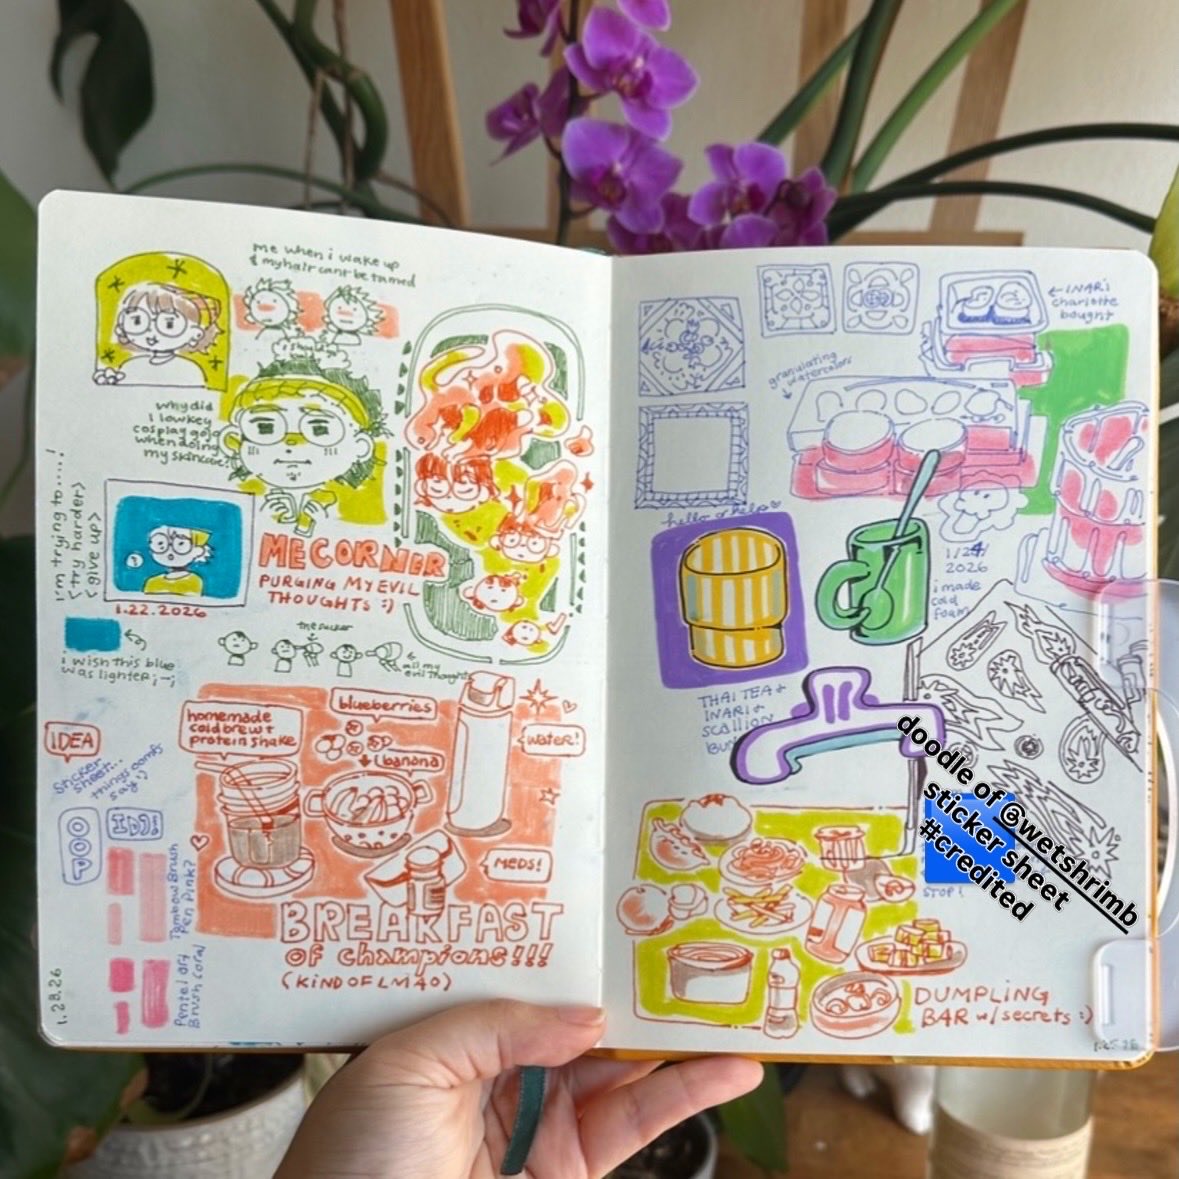 me when i wake up
& my hair cant be tamed
why did
I lowkey
cosplay gojo
when doing
my skincare?
i'm trying to....!
<try harder>
<give up>
1.22.2026
ME CORNER
PURGING MY EVIL
THOUGHTS :)
i wish this blue
was lighter ;-;
the sucker
all my
evil thoughts
IDEA
Sticker
sheet...
things oomfs
say :)
POOP
homemade
cold brew +
protein shake
blueberries
banana
WATER!
MEDS!
BREAKFAST
OF champions!!!
(KIND OF LMAO)
Tombow Brush
Pen Pink?
Pentel Art
Brush Coral
1.23.26
INARI
charlotte
bought
granulating
watercolors
hello & help
1/24/
2026
i made
cold
foam
THAI TEA +
INARI +
SCALLION
doodle of @wetshrimb
sticker sheet
#credited
STOP!
DUMPLING
BAR w/ secrets :)
1.25.26